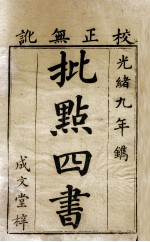 校正無訛
光緒九年鐫
批點四書
成文堂梓